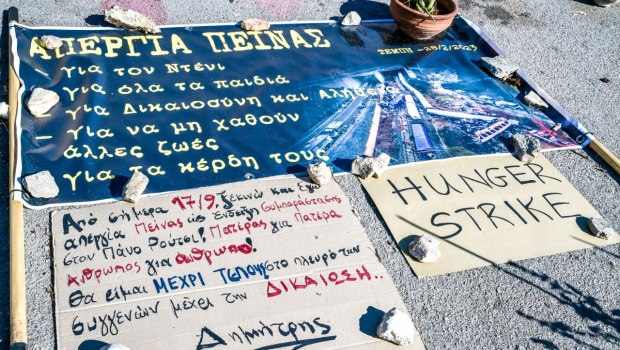 ΑΠΕΡΓΙΑ ΠΕΙΝΑΣ
ΤΕΜΠΗ - 28/2/2023
- για τον Ντένι
- για όλα τα παιδιά
- για Δικαιοσύνη και Αλήθεια
- για να μη χαθούν
άλλες ζωές
- για τα κέρδη τους
Από σήμερα 17/9 ξεκινώ και Εγώ
απεργία Πείνας ως Ένδειξη Συμπαράστασης
στον Πάνο Ρούτσι! Πατέρας για Πατέρα
Άθρωπος για άθρωπο!
Θα είμαι ΜΕΧΡΙ ΤΕΛΟΥΣ στο πλευρό των
συγγενών μέχρι την ΔΙΚΑΙΩΣΗ..
Δημήτρης
HUNGER
STRIKE